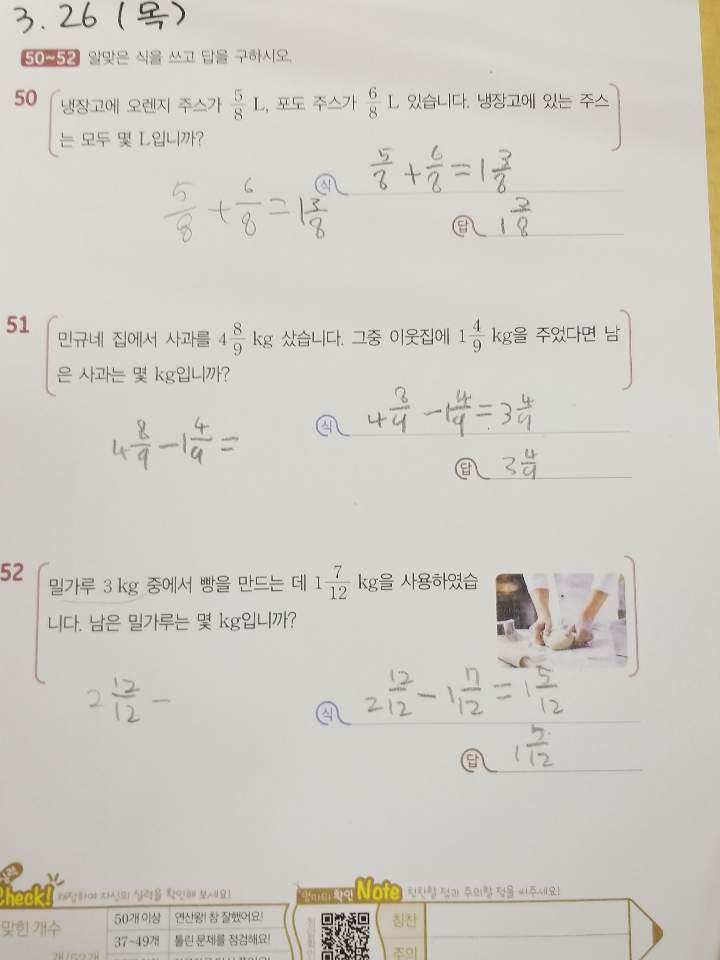 3. 26 (목)
50~52 알맞은 식을 쓰고 답을 구하시오.
50 냉장고에 오렌지 주스가 5/8 L, 포도 주스가 6/8 L 있습니다. 냉장고에 있는 주스
는 모두 몇 L입니까?
식 5/8 + 6/8 = 1 3/8
5/8 + 6/8 = 1 3/8
답 1 3/8
51 민규네 집에서 사과를 4 8/9 kg 샀습니다. 그중 이웃집에 1 4/9 kg을 주었다면 남
은 사과는 몇 kg입니까?
식 4 8/9 - 1 4/9 = 3 4/9
4 8/9 - 1 4/9 =
답 3 4/9
52 밀가루 3 kg 중에서 빵을 만드는 데 1 7/12 kg을 사용하였습
니다. 남은 밀가루는 몇 kg입니까?
2 12/12 -
식 2 12/12 - 1 7/12 = 1 5/12
답 1 5/12
실력 Check! 채점하여 자신의 실력을 확인해 보세요!
엄마의 확인 Note 칭찬할 점과 주의할 점을 써주세요!
맞힌 개수
50개 이상 연산왕! 참 잘했어요!
칭찬
37~49개 틀린 문제를 점검해요!
개/52개
주의